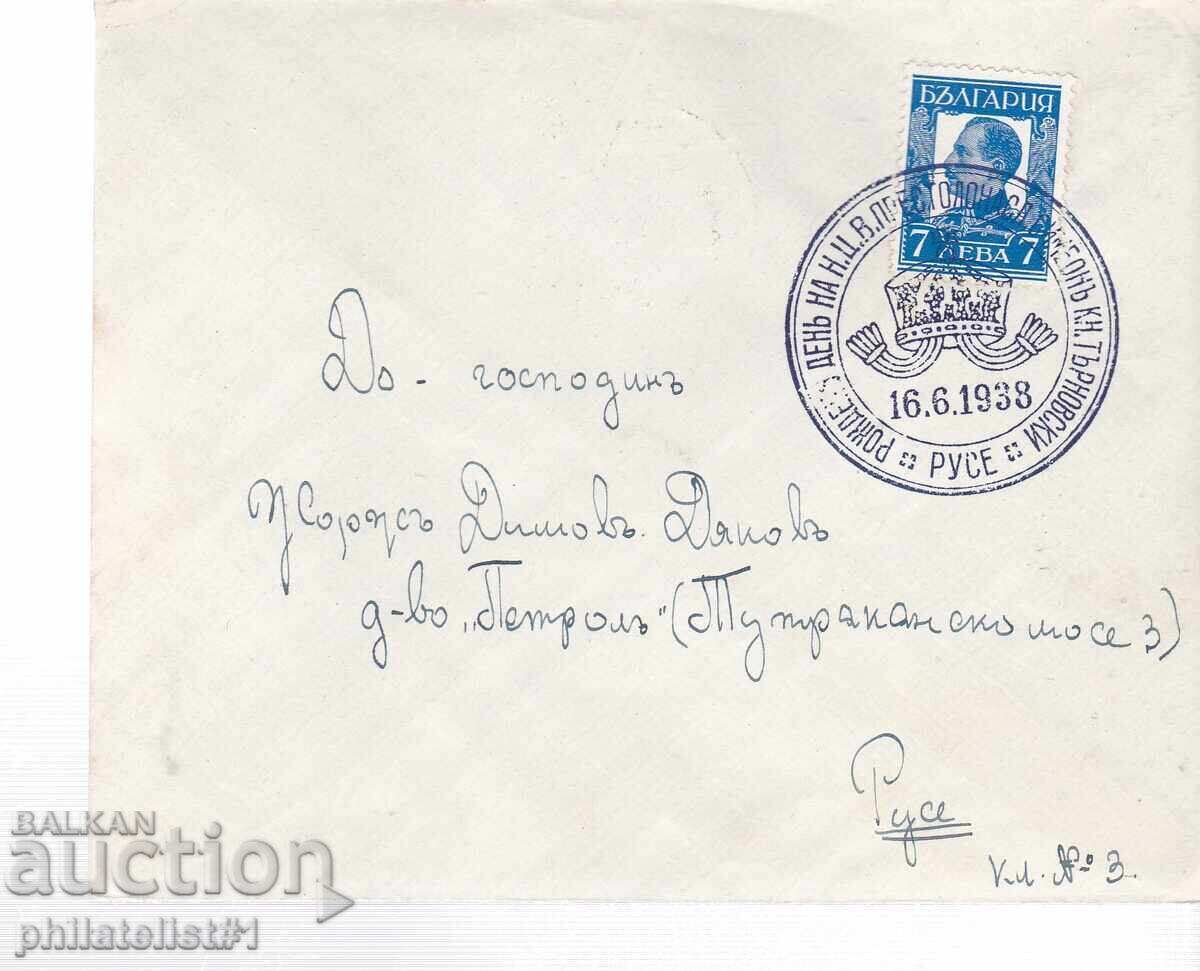 БЪЛГАРИЯ
7 ЛЕВА 7
РОЖДЕНЪ ДЕНЬ НА Н.Ц.В. ПРЕСТОЛОНАСЛ. СИМЕОНЪ КН. ТЪРНОВСКИ
16.6.1938
РУСЕ
До - господинъ
Жоржъ Димовъ Дяковъ
д-во „Петролъ" (Тутраканско шосе 3)
Русе
кл. № 3.
BALKAN
auction
philatelist#1